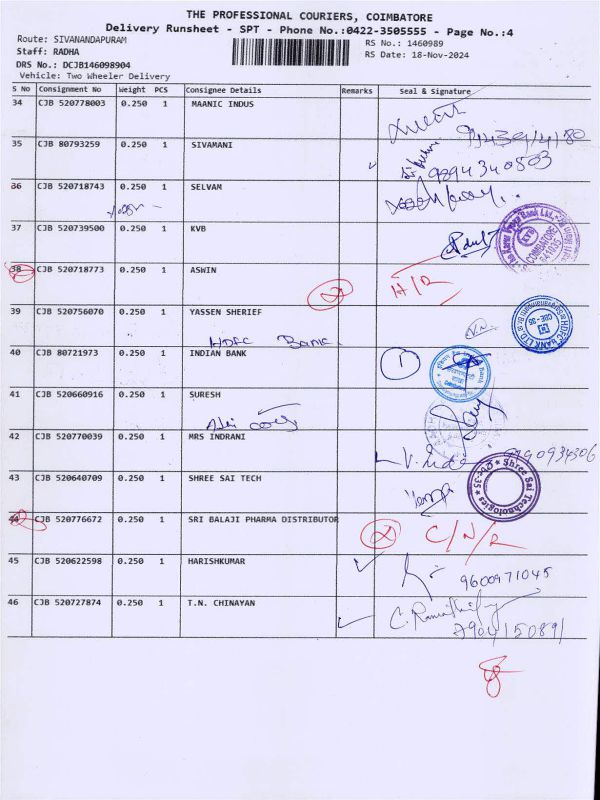 THE PROFESSIONAL COURIERS, COIMBATORE
Delivery Runsheet - SPT - Phone No.:0422-3505555 - Page No.:4
Route: SIVANANDAPURAM
RS No.: 1460989
Staff: RADHA
RS Date: 18-Nov-2024
DRS No.: DCJB146098904
Vehicle: Two Wheeler Delivery
S No Consignment No Weight PCS Consignee Details Remarks Seal & Signature
34 CJB 520778003 0.250 1 MAANIC INDUS
35 CJB 80793259 0.250 1 SIVAMANI
9894340503
36 CJB 520718743 0.250 1 SELVAM
37 CJB 520739500 0.250 1 KVB
COIMBATORE
38 CJB 520718773 0.250 1 ASWIN
H/R
39 CJB 520756070 0.250 1 YASSEN SHERIEF
HDFC BANK LTD.
HDFC Bank
40 CJB 80721973 0.250 1 INDIAN BANK
1
41 CJB 520660916 0.250 1 SURESH
42 CJB 520770039 0.250 1 MRS INDRANI
43 CJB 520640709 0.250 1 SHREE SAI TECH
Shree Sai Technologies * Cbe-35 *
44 CJB 520776672 0.250 1 SRI BALAJI PHARMA DISTRIBUTOR
C/N/R
45 CJB 520622598 0.250 1 HARISHKUMAR
9600971045
46 CJB 520727874 0.250 1 T.N. CHINAYAN